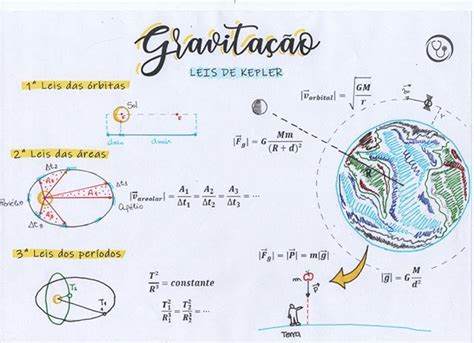 Gravitação
LEIS DE KEPLER
1ª Leis das órbitas
Sol
dmín
dmáx
2ª Leis das áreas
Δt2
Δt1
Δt3
A2
A1
A3
Periélio
Afélio
|v⃗areolar| = A1/Δt1 = A2/Δt2 = A3/Δt3 = ⋯
3ª Leis dos períodos
T1
T2
T²/R³ = constante
T1²/R1³ = T2²/R2³ = ⋯
|v⃗orbital| = √(GM/r)
|F⃗g| = G Mm/(R + d)²
R
|F⃗g| = |P⃗| = m|g⃗|
|g⃗| = G M/d²
Terra